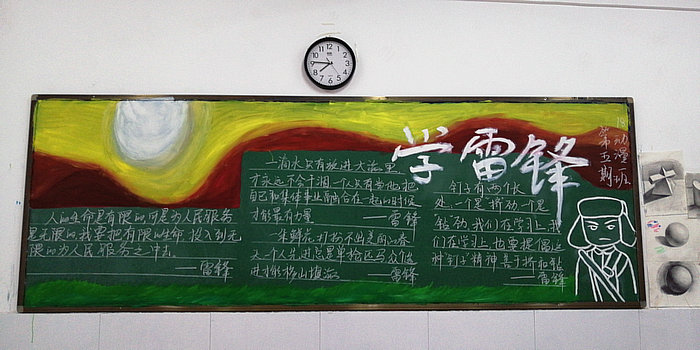 学雷锋
18动漫班
第五期
人的生命是有限的可是为人民服务
是无限的我要把有限的生命投入到无
限的为人民服务之中去
——雷锋
一滴水只有放进大海里
才永远不会干涸一个人只有当他把
自己和集体事业融合在一起的时候
才能最有力量
——雷锋
一朵鲜花打扮不出美丽的春
天一个人先进总是单枪匹马众人先
进才能移山填海
——雷锋
钉子有两个长
处一个是挤劲一个是
钻劲我们在学习上我
们在学习上也要提倡这
种钉子精神善于挤和钻
——雷锋